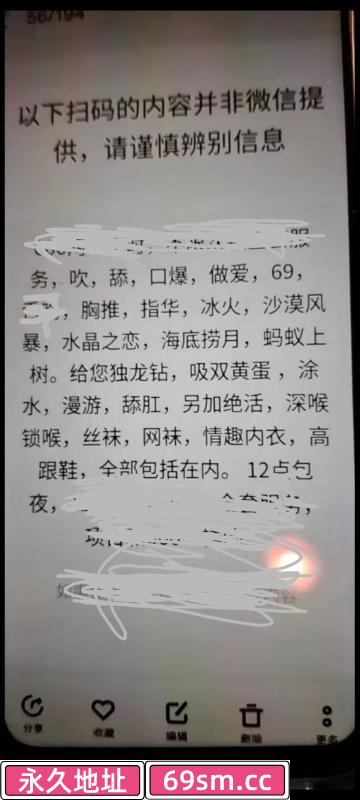 56/194
以下扫码的内容并非微信提
供，请谨慎辨别信息
服
务，吹，舔，口爆，做爱，69，
胸推，指华，冰火，沙漠风
暴，水晶之恋，海底捞月，蚂蚁上
树。给您独龙钻，吸双黄蛋，涂
水，漫游，舔肛，另加绝活，深喉
锁喉，丝袜，网袜，情趣内衣，高
跟鞋，全部包括在内。 12点包
夜，
全套服务，
分享
收藏
编辑
删除
更多
永久地址
69sm.cc